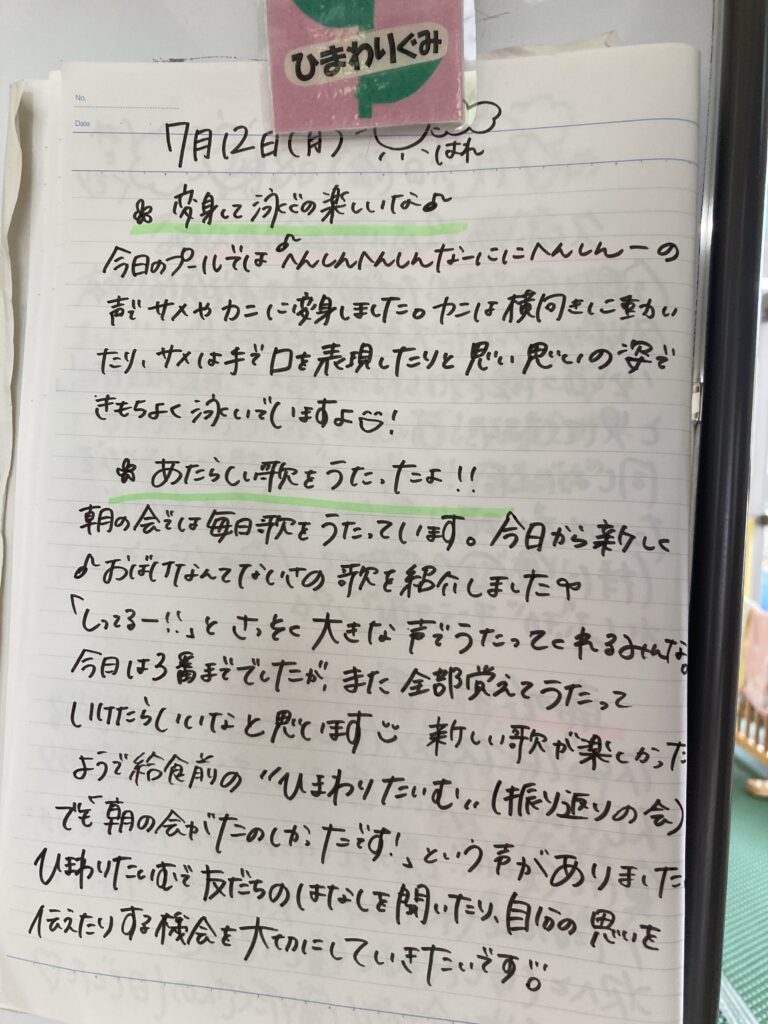 ひまわりぐみ
No.
Date
7月12日(月) はれ
変身して泳ぐの楽しいな♪
今日のプールでは♪へんしんへんしんなーににへんしんーの
声でサメやカニに変身しました。カニは横向きに動い
たり、サメは手で口を表現したりと思い思いの姿で
きもちよく泳いでいますよ!
あたらしい歌をうたったよ!!
朝の会では毎日歌をうたっています。今日から新しく
♪おばけなんてないさの歌を紹介しました
「しってるー!!」とさっそく大きな声でうたってくれるみんな。
今日は3番まででしたが、また全部覚えてうたって
いけたらいいなと思います 新しい歌が楽しかった
ようで給食前の"ひまわりたいむ"(振り返りの会)
でも「朝の会がたのしかったです!」という声がありました
ひまわりたいむで友だちのはなしを聞いたり、自分の思いを
伝えたりする機会を大切にしていきたいです。